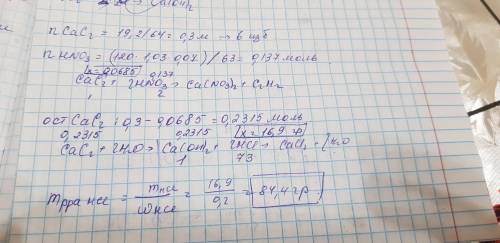 → Ca(OH)₂
n CaC₂ = 19,2/64 = 0,3 м → в изб
n HNO₃ = (120 · 1,03 · 0,07) / 63 = 0,137 моль
x = 0,0685 0,137
CaC₂ + 2HNO₃ → Ca(NO₃)₂ + C₂H₂
2
ост CaC₂ : 0,3 - 0,0685 = 0,2315 моль
0,2315 0,2315 x = 16,9 гр
CaC₂ + 2H₂O → Ca(OH)₂ + 2HCl → CaCl₂ + H₂O
1 73
m р-ра HCl = mHCl / ωHCl = 16,9 / 0,2 = 84,4 гр.